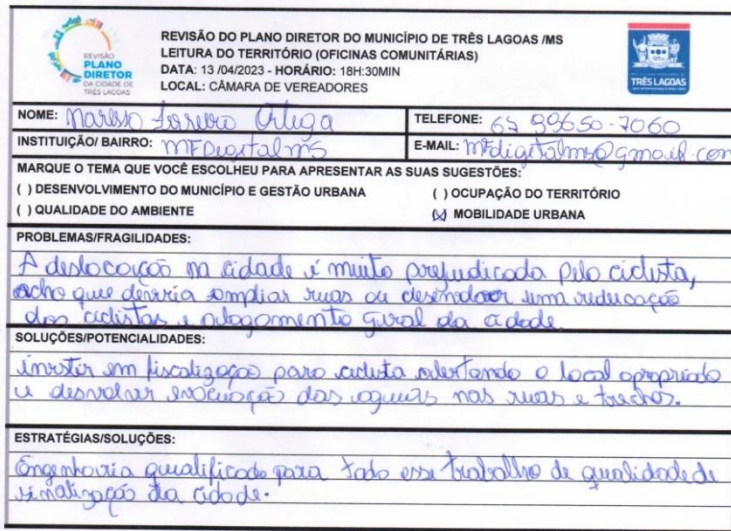 REVISÃO
PLANO
DIRETOR
DA CIDADE DE
TRÊS LAGOAS
REVISÃO DO PLANO DIRETOR DO MUNICÍPIO DE TRÊS LAGOAS /MS
LEITURA DO TERRITÓRIO (OFICINAS COMUNITÁRIAS)
DATA: 13 /04/2023 - HORÁRIO: 18H:30MIN
LOCAL: CÂMARA DE VEREADORES
TRÊS LAGOAS
NOME:
TELEFONE: 67 99650-7060
INSTITUIÇÃO/ BAIRRO: MFDigitalms
E-MAIL: mfdigitalms@gmail.com
MARQUE O TEMA QUE VOCÊ ESCOLHEU PARA APRESENTAR AS SUAS SUGESTÕES:
( ) DESENVOLVIMENTO DO MUNICÍPIO E GESTÃO URBANA
( ) OCUPAÇÃO DO TERRITÓRIO
( ) QUALIDADE DO AMBIENTE
(x) MOBILIDADE URBANA
PROBLEMAS/FRAGILIDADES:
A deslocação na cidade é muito prejudicada pelo ciclista,
acho que deveria ampliar ruas ou uma reducação
dos ciclistas e alagamento geral da cidade.
SOLUÇÕES/POTENCIALIDADES:
investir em fiscalização para ciclista alertando o local apropriado
e desvolver evacuação das aguas nas ruas e trechos.
ESTRATÉGIAS/SOLUÇÕES:
Engenharia qualificada para todo esse trabalho de qualidade de
sinalização da cidade.